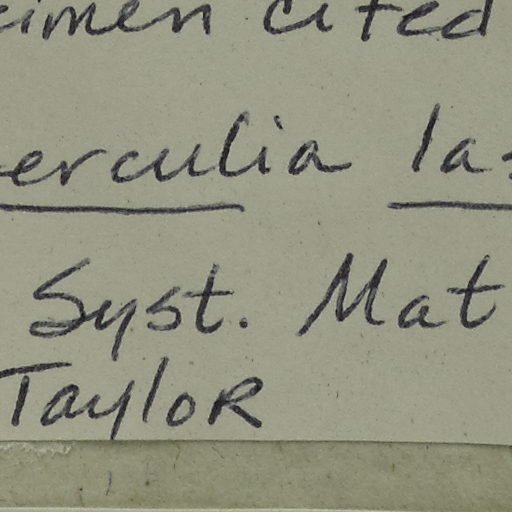 cimen cited
erculia las
Syst. Mat
Taylor